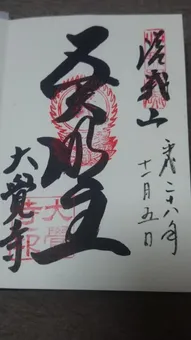 嵯峨山
平成二十八年
十一月五日
五大明王
大覺寺